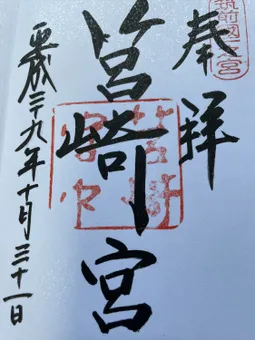 奉拝
筑前國一之宮
筥崎宮
平成二十九年十月三十一日